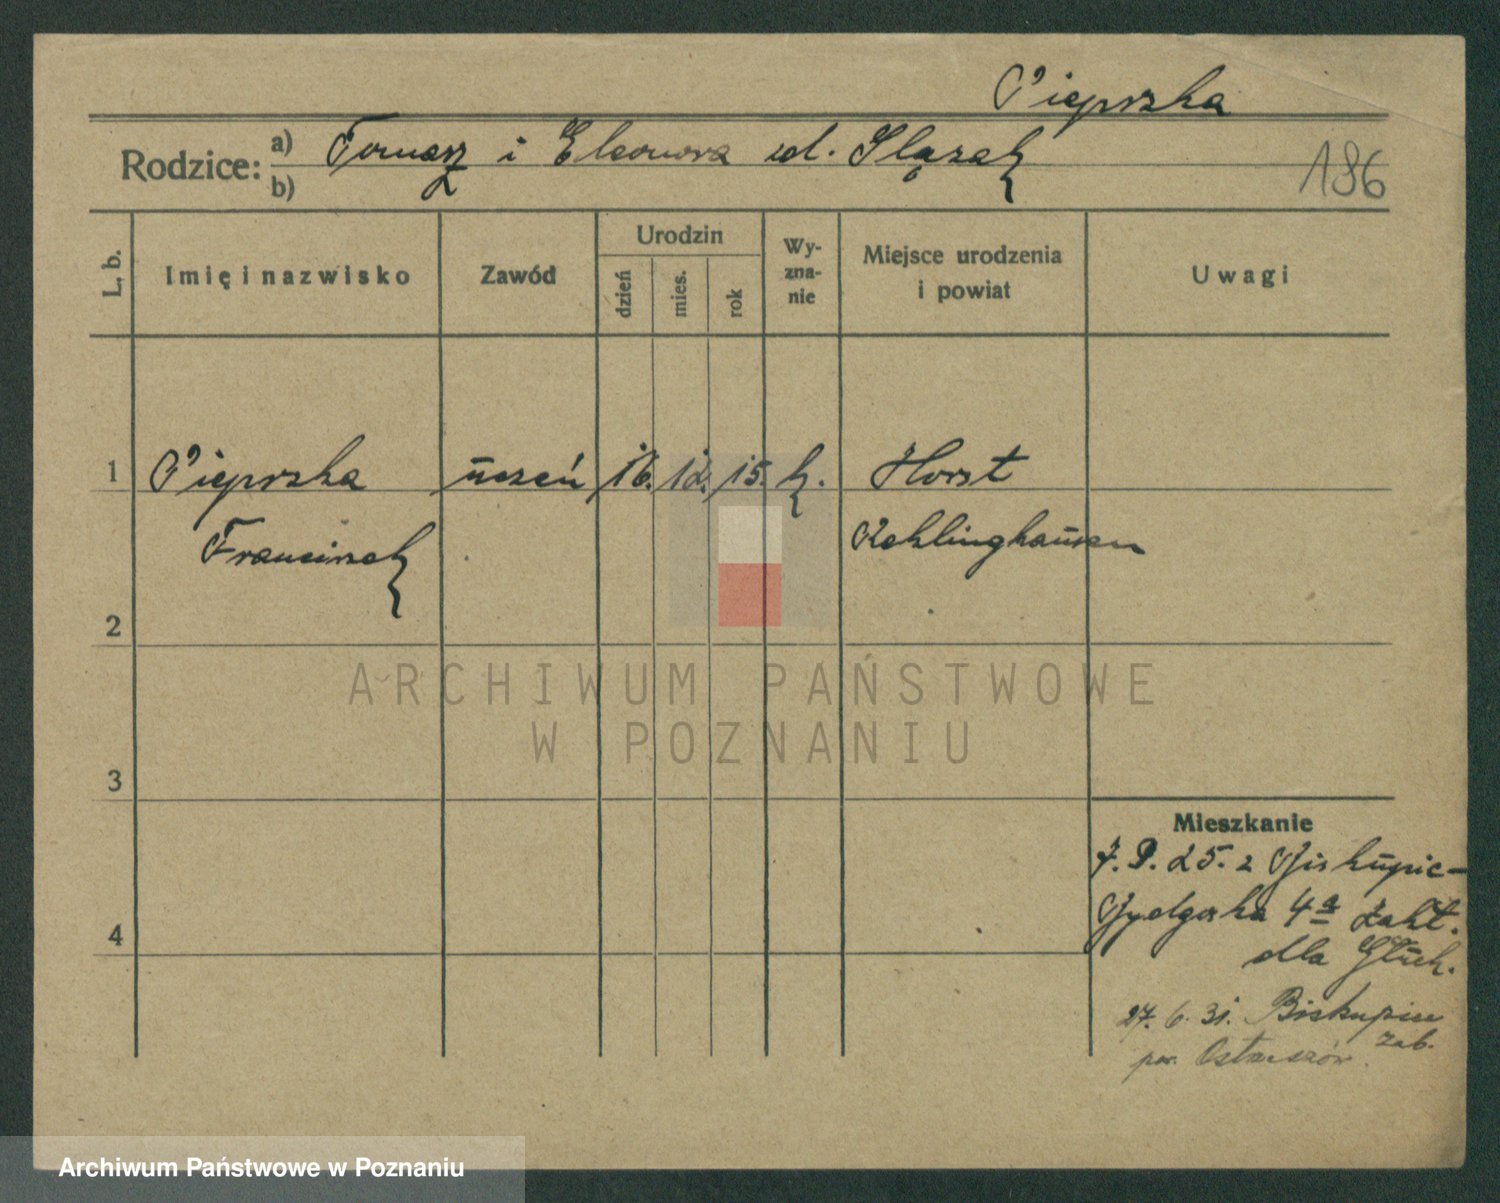 Pieprzka
Rodzice: a) Tomasz i Eleonora ud. Ślązak
b)
186
L. b.
Imię i nazwisko
Zawód
Urodzin
dzień
mies.
rok
Wy-
zna-
nie
Miejsce urodzenia
i powiat
Uwagi
1 Pieprzka uczeń 16. 12. 15. k. Horst
Franciszek Reklinghausen
2
3
4
Mieszkanie
7. P. 25. z Biskupic-
Bydgoska 4a Zakł.
dla Głuch.
27. 6. 31. Biskupice
zab.
pow. Ostrzeszów.
ARCHIWUM PAŃSTWOWE
W POZNANIU
Archiwum Państwowe w Poznaniu